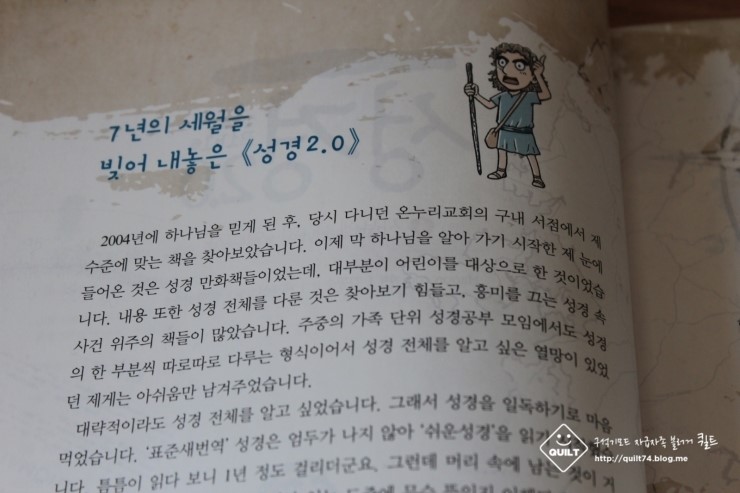 7년의 세월을
빚어 내놓은 《성경2.0》
2004년에 하나님을 믿게 된 후, 당시 다니던 온누리교회의 구내 서점에서 제
수준에 맞는 책을 찾아보았습니다. 이제 막 하나님을 알아 가기 시작한 제 눈에
들어온 것은 성경 만화책들이었는데, 대부분이 어린이를 대상으로 한 것이었습
니다. 내용 또한 성경 전체를 다룬 것은 찾아보기 힘들고, 흥미를 끄는 성경 속
사건 위주의 책들이 많았습니다. 주중의 가족 단위 성경공부 모임에서도 성경
의 한 부분씩 따로따로 다루는 형식이어서 성경 전체를 알고 싶은 열망이 있었
던 제게는 아쉬움만 남겨주었습니다.
대략적이라도 성경 전체를 알고 싶었습니다. 그래서 성경을 일독하기로 마음
먹었습니다. '표준새번역' 성경은 엄두가 나지 않아 '쉬운성경'을
니다. 틈틈이 읽다 보니 1년 정도 걸리더군요. 그런데 머리 속에 남는 것이 거
QUILT
퀼트
http://quilt74.blog.me